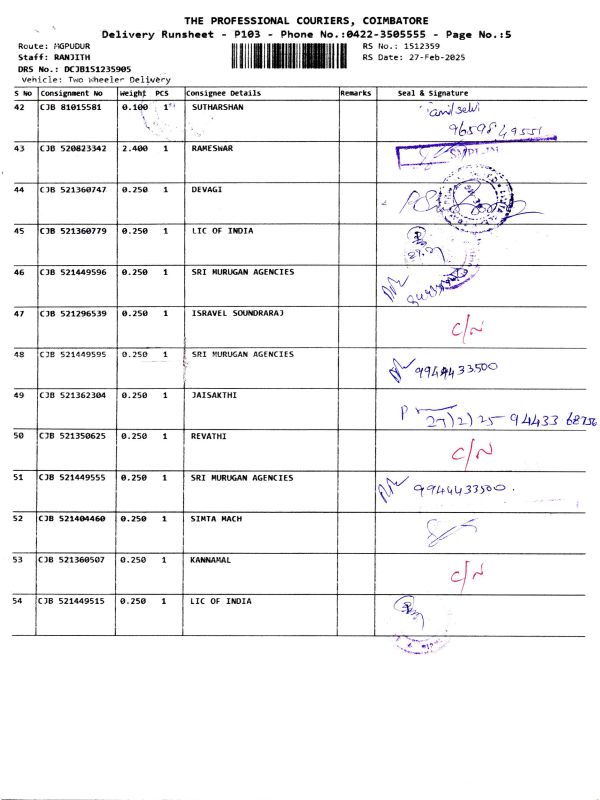 THE PROFESSIONAL COURIERS, COIMBATORE
Delivery Runsheet - P103 - Phone No.:0422-3505555 - Page No.:5
Route: MGPUDUR RS No.: 1512359
Staff: RANJITH RS Date: 27-Feb-2025
DRS No.: DCJB151235905
Vehicle: Two Wheeler Delivery
S No Consignment No Weight PCS Consignee Details Remarks Seal & Signature
42 CJB 81015581 0.100 1 SUTHARSHAN
43 CJB 520823342 2.400 1 RAMESWAR
44 CJB 521360747 0.250 1 DEVAGI
45 CJB 521360779 0.250 1 LIC OF INDIA
46 CJB 521449596 0.250 1 SRI MURUGAN AGENCIES
47 CJB 521296539 0.250 1 ISRAVEL SOUNDRARAJ C/N
48 CJB 521449595 0.250 1 SRI MURUGAN AGENCIES 9944433500
49 CJB 521362304 0.250 1 JAISAKTHI 27/2/25 94433 68756
50 CJB 521350625 0.250 1 REVATHI C/N
51 CJB 521449555 0.250 1 SRI MURUGAN AGENCIES 9944433500.
52 CJB 521404460 0.250 1 SIMTA MACH
53 CJB 521360507 0.250 1 KANNAMAL C/N
54 CJB 521449515 0.250 1 LIC OF INDIA